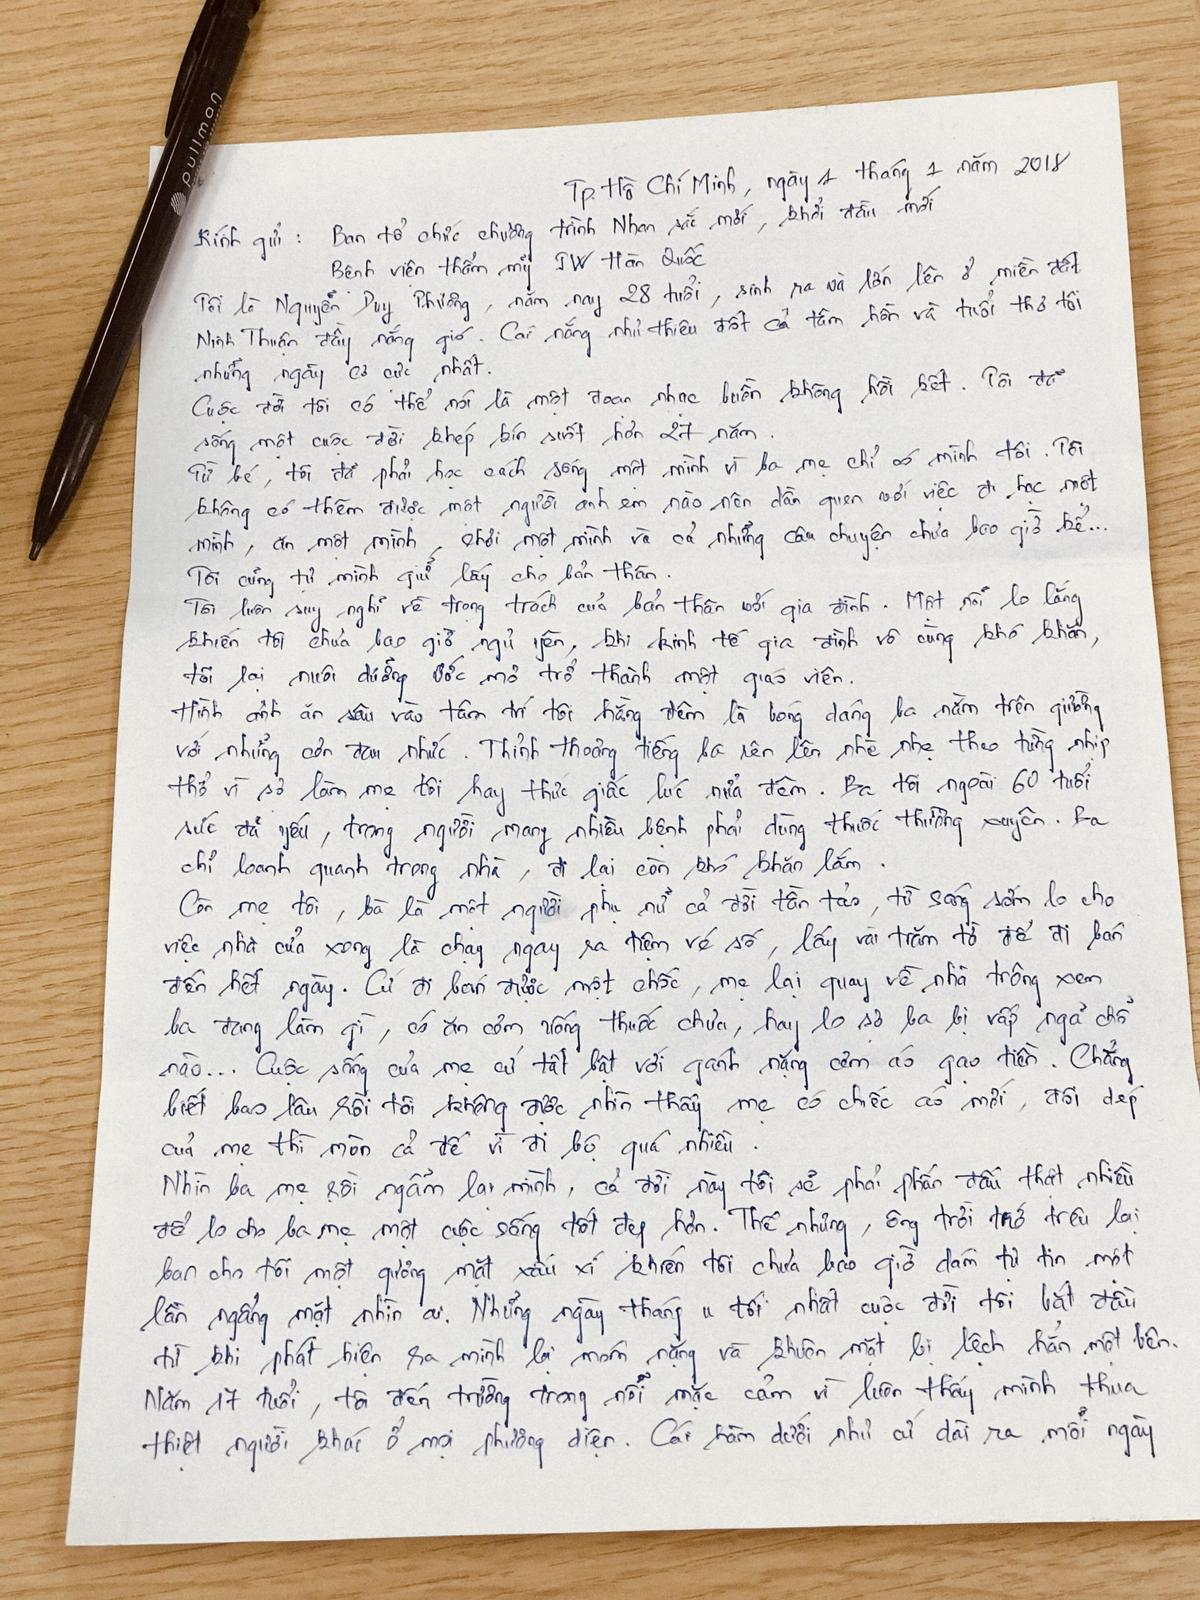 pullman
Tp. Hồ Chí Minh, ngày 1 tháng 1 năm 2018
Kính gửi : Ban tổ chức chương trình Nhan sắc mới, khởi đầu mới
Bệnh viện thẩm mỹ JW Hàn Quốc
Tôi là Nguyễn Duy Phương, năm nay 28 tuổi, sinh ra và lớn lên ở miền đất
Ninh Thuận đầy nắng gió. Cái nắng như thiêu đốt cả tâm hồn và tuổi thơ tôi
những ngày cơ cực nhất.
Cuộc đời tôi có thể nói là một đoạn nhạc buồn không hồi kết. Tôi đã
sống một cuộc đời khép kín suốt hơn 27 năm.
Từ bé, tôi đã phải học cách sống một mình vì ba mẹ chỉ có mình tôi. Tôi
không có thêm được một người anh em nào nên dần quen với việc đi học một
mình, ăn một mình, chơi một mình và cả những câu chuyện chưa bao giờ kể...
Tôi cũng tự mình giữ lấy cho bản thân.
Tôi luôn suy nghĩ về trọng trách của bản thân với gia đình. Một nỗi lo lắng
khiến tôi chưa bao giờ ngủ yên, khi kinh tế gia đình vô cùng khó khăn,
tôi lại nuôi dưỡng ước mơ trở thành một giáo viên.
Hình ảnh ăn sâu vào tâm trí tôi hằng đêm là bóng dáng ba nằm trên giường
với những cơn đau nhức. Thỉnh thoảng tiếng ba rên lên nhè nhẹ theo từng nhịp
thở vì sợ làm mẹ tôi hay thức giấc lúc nửa đêm. Ba tôi ngoài 60 tuổi
sức đã yếu, trong người mang nhiều bệnh phải dùng thuốc thường xuyên. Ba
chỉ loanh quanh trong nhà, đi lại còn khó khăn lắm.
Còn mẹ tôi, bà là một người phụ nữ cả đời tần tảo, từ sáng sớm lo cho
việc nhà cửa xong là chạy ngay ra tiệm vé số, lấy vài trăm tờ để đi bán
đến hết ngày. Cứ đi bán được một chốc, mẹ lại quay về nhà trông xem
ba đang làm gì, có ăn cơm uống thuốc chưa, hay lo sợ ba bị vấp ngã chỗ
nào... Cuộc sống của mẹ cứ tất bật với gánh nặng cơm áo gạo tiền. Chẳng
biết bao lâu rồi tôi không được nhìn thấy mẹ có chiếc áo mới, đôi dép
của mẹ thì mòn cả đế vì đi bộ quá nhiều.
Nhìn ba mẹ rồi ngẫm lại mình, cả đời này tôi sẽ phải phấn đấu thật nhiều
để lo cho ba mẹ một cuộc sống tốt đẹp hơn. Thế nhưng, ông trời trớ trêu lại
ban cho tôi một gương mặt xấu xí khiến tôi chưa bao giờ dám tự tin một
lần ngẩng mặt nhìn ai. Những ngày tháng u tối nhất cuộc đời tôi bắt đầu
từ khi phát hiện ra mình bị móm nặng và khuôn mặt bị lệch hẳn một bên.
Năm 17 tuổi, tôi đến trường trong nỗi mặc cảm vì luôn thấy mình thua
thiệt người khác ở mọi phương diện. Cái hàm dưới như cứ dài ra mỗi ngày